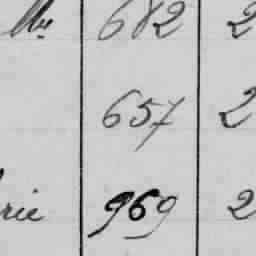 682 2
657 2
rie 969 2